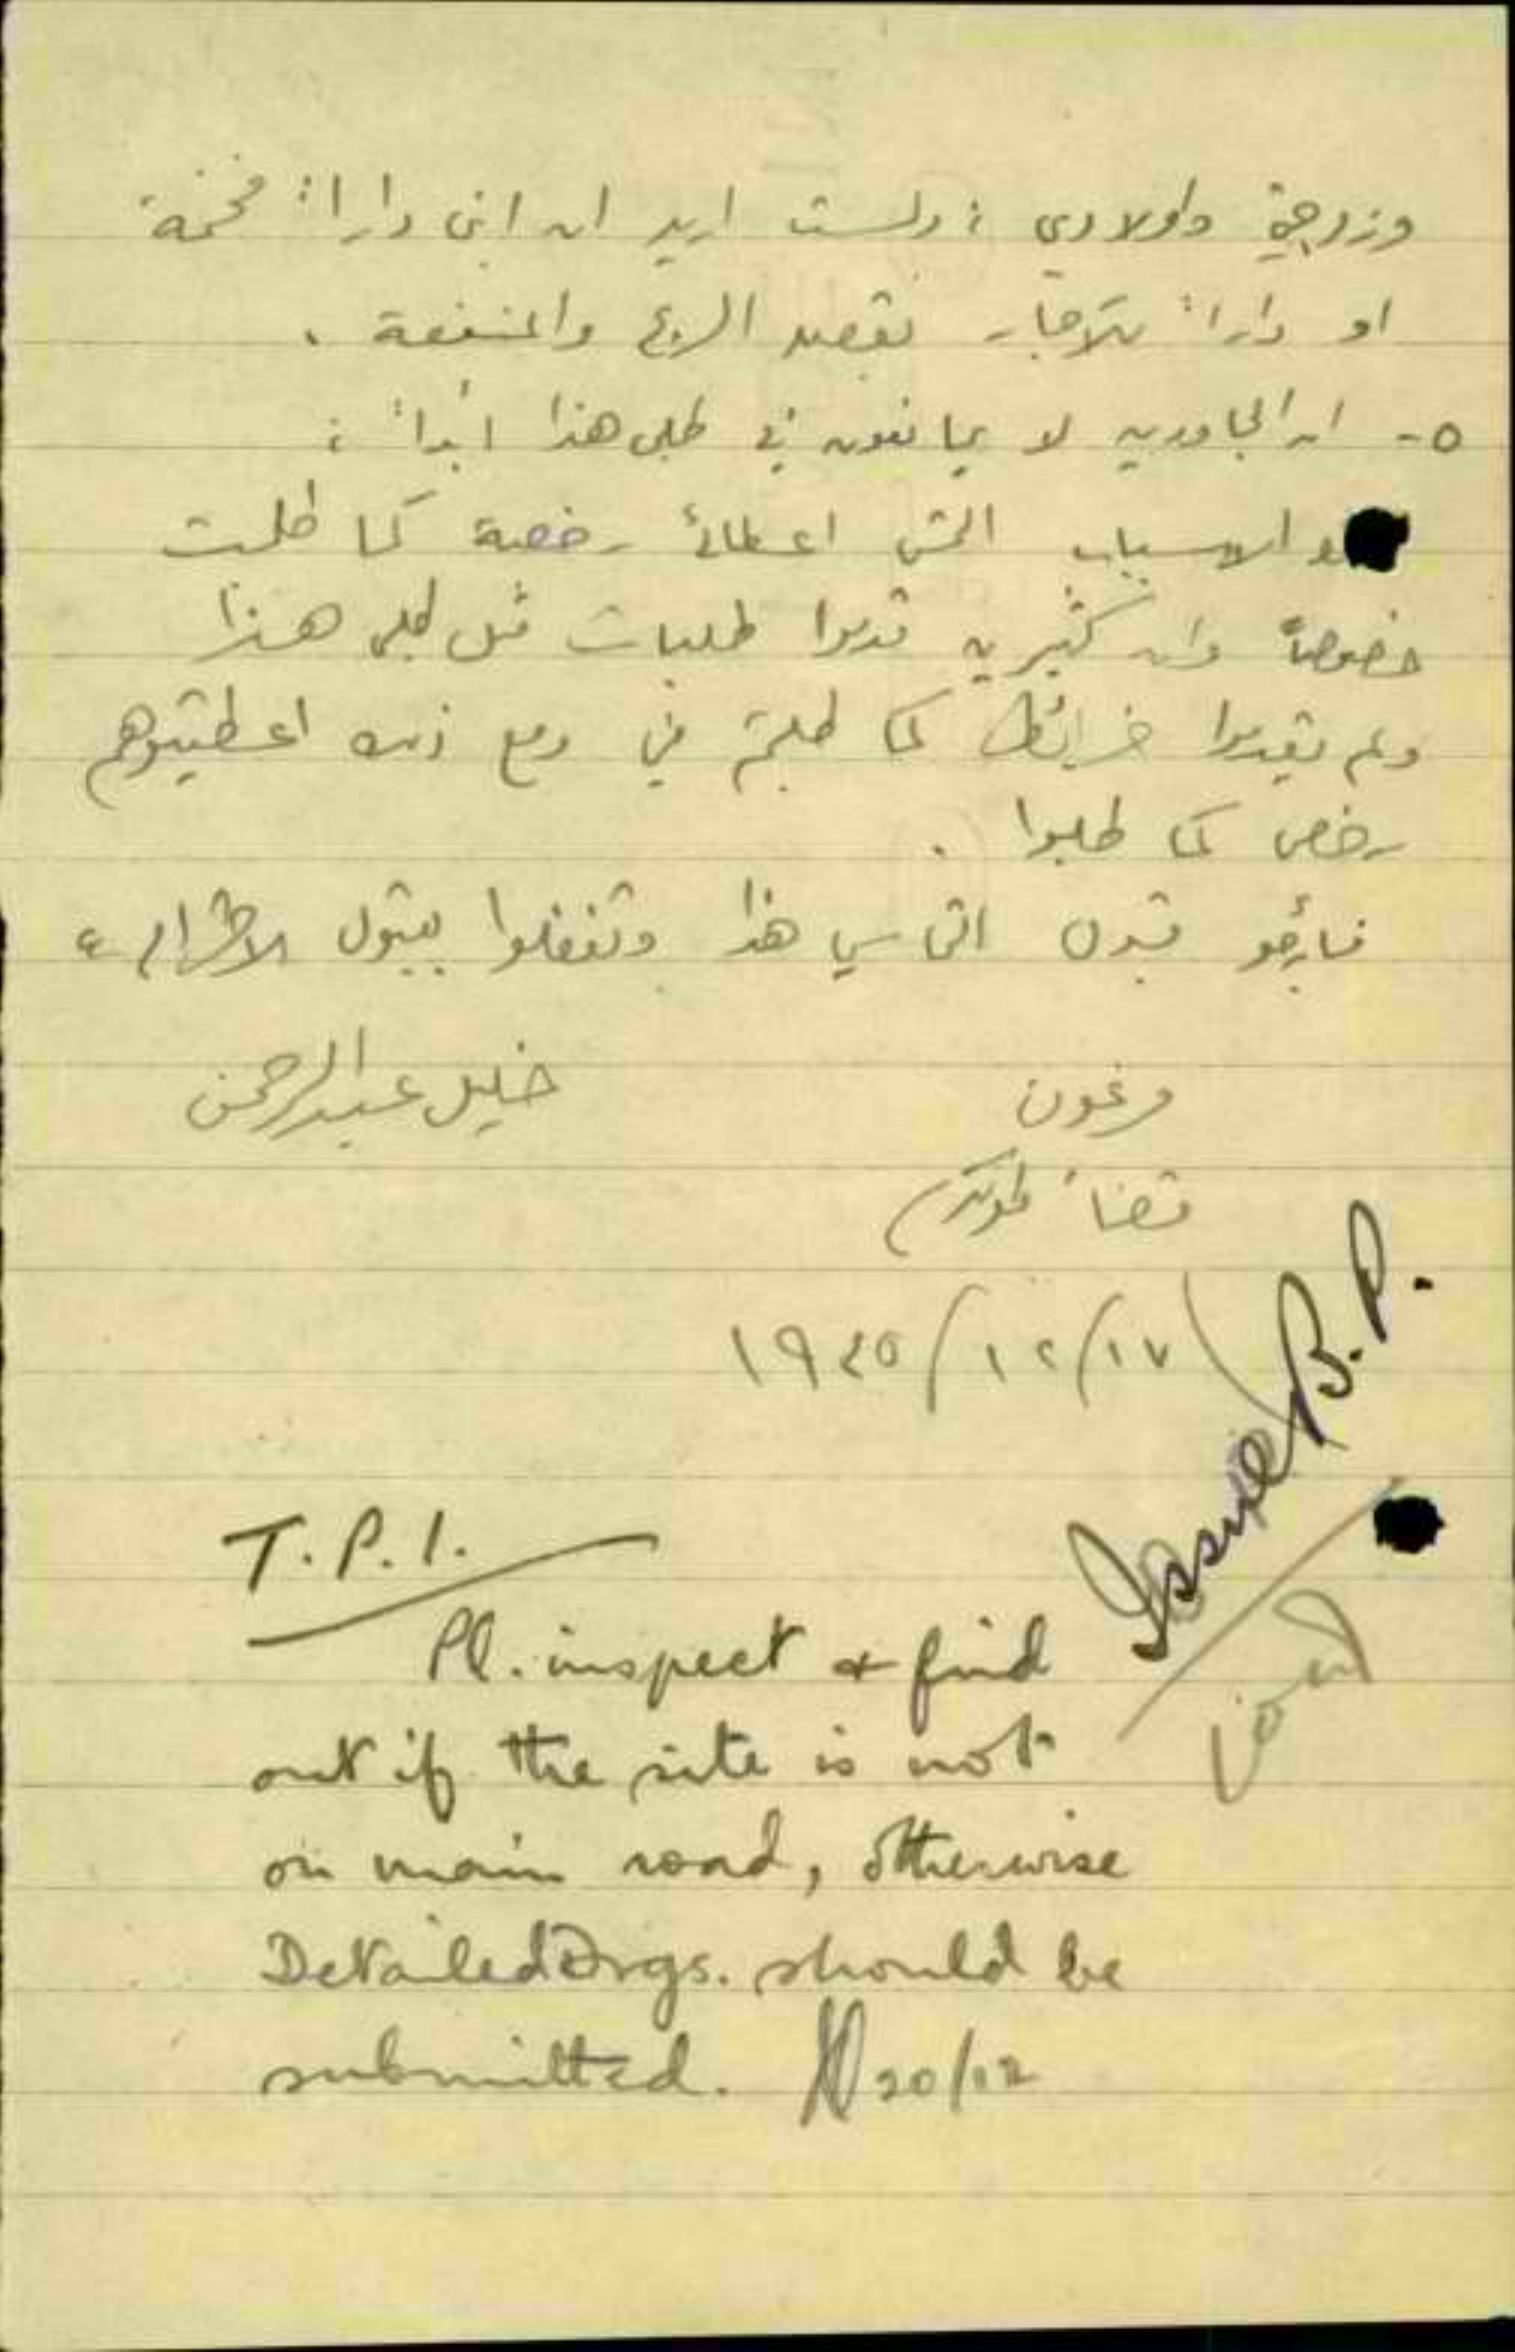 وزوجتي واولادي ؛ ولست اريد ان ابني داراً فخمة
او داراً للايجار بقصد الربح والمنفعة .
٥- ان المجاورين لا يمانعون في طلبي هذا ابداً ؛
الاسباب التمس اعطائي رخصة كما طلبت
خصوصاً وان كثيرين قدموا طلبات مثل طلبي هذا
ولم يقدموا خرائط كما طلبتم مني ومع ذلك اعطيتوهم
رخص كما طلبوا .
فأرجو قبول التماسي هذا وتفضلوا بقبول الاحترام ،
خليل عبدالرحمن
فرعون
قضاء طولكرم
١٩٤٥/١٢/١٧
Issue B.P.
T.P.I.
Pl. inspect & find
out if the site is not
on main road, otherwise
Detailed Drgs. should be
submitted. 20/12